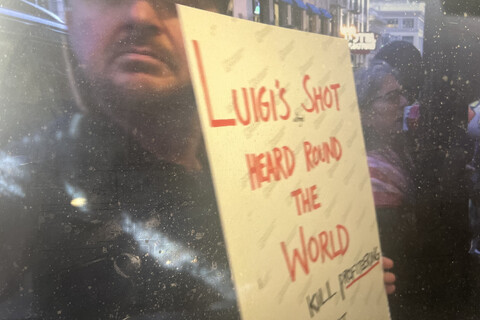 LUIGI'S SHOT
HEARD ROUND
THE
WORLD
KILL PROFITEERING